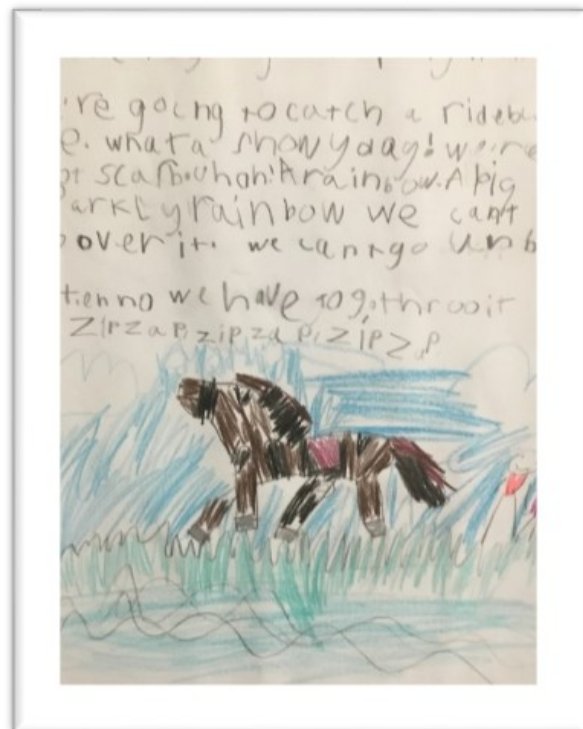 're going to catch a rideb
e. what a snowy day! we're
ot scarb uhoh! A rainbow. A big
arkly rainbow we cant
over it. we cant go unb
tien no we have to go throo it
Zip zap, zip zap, zip zap